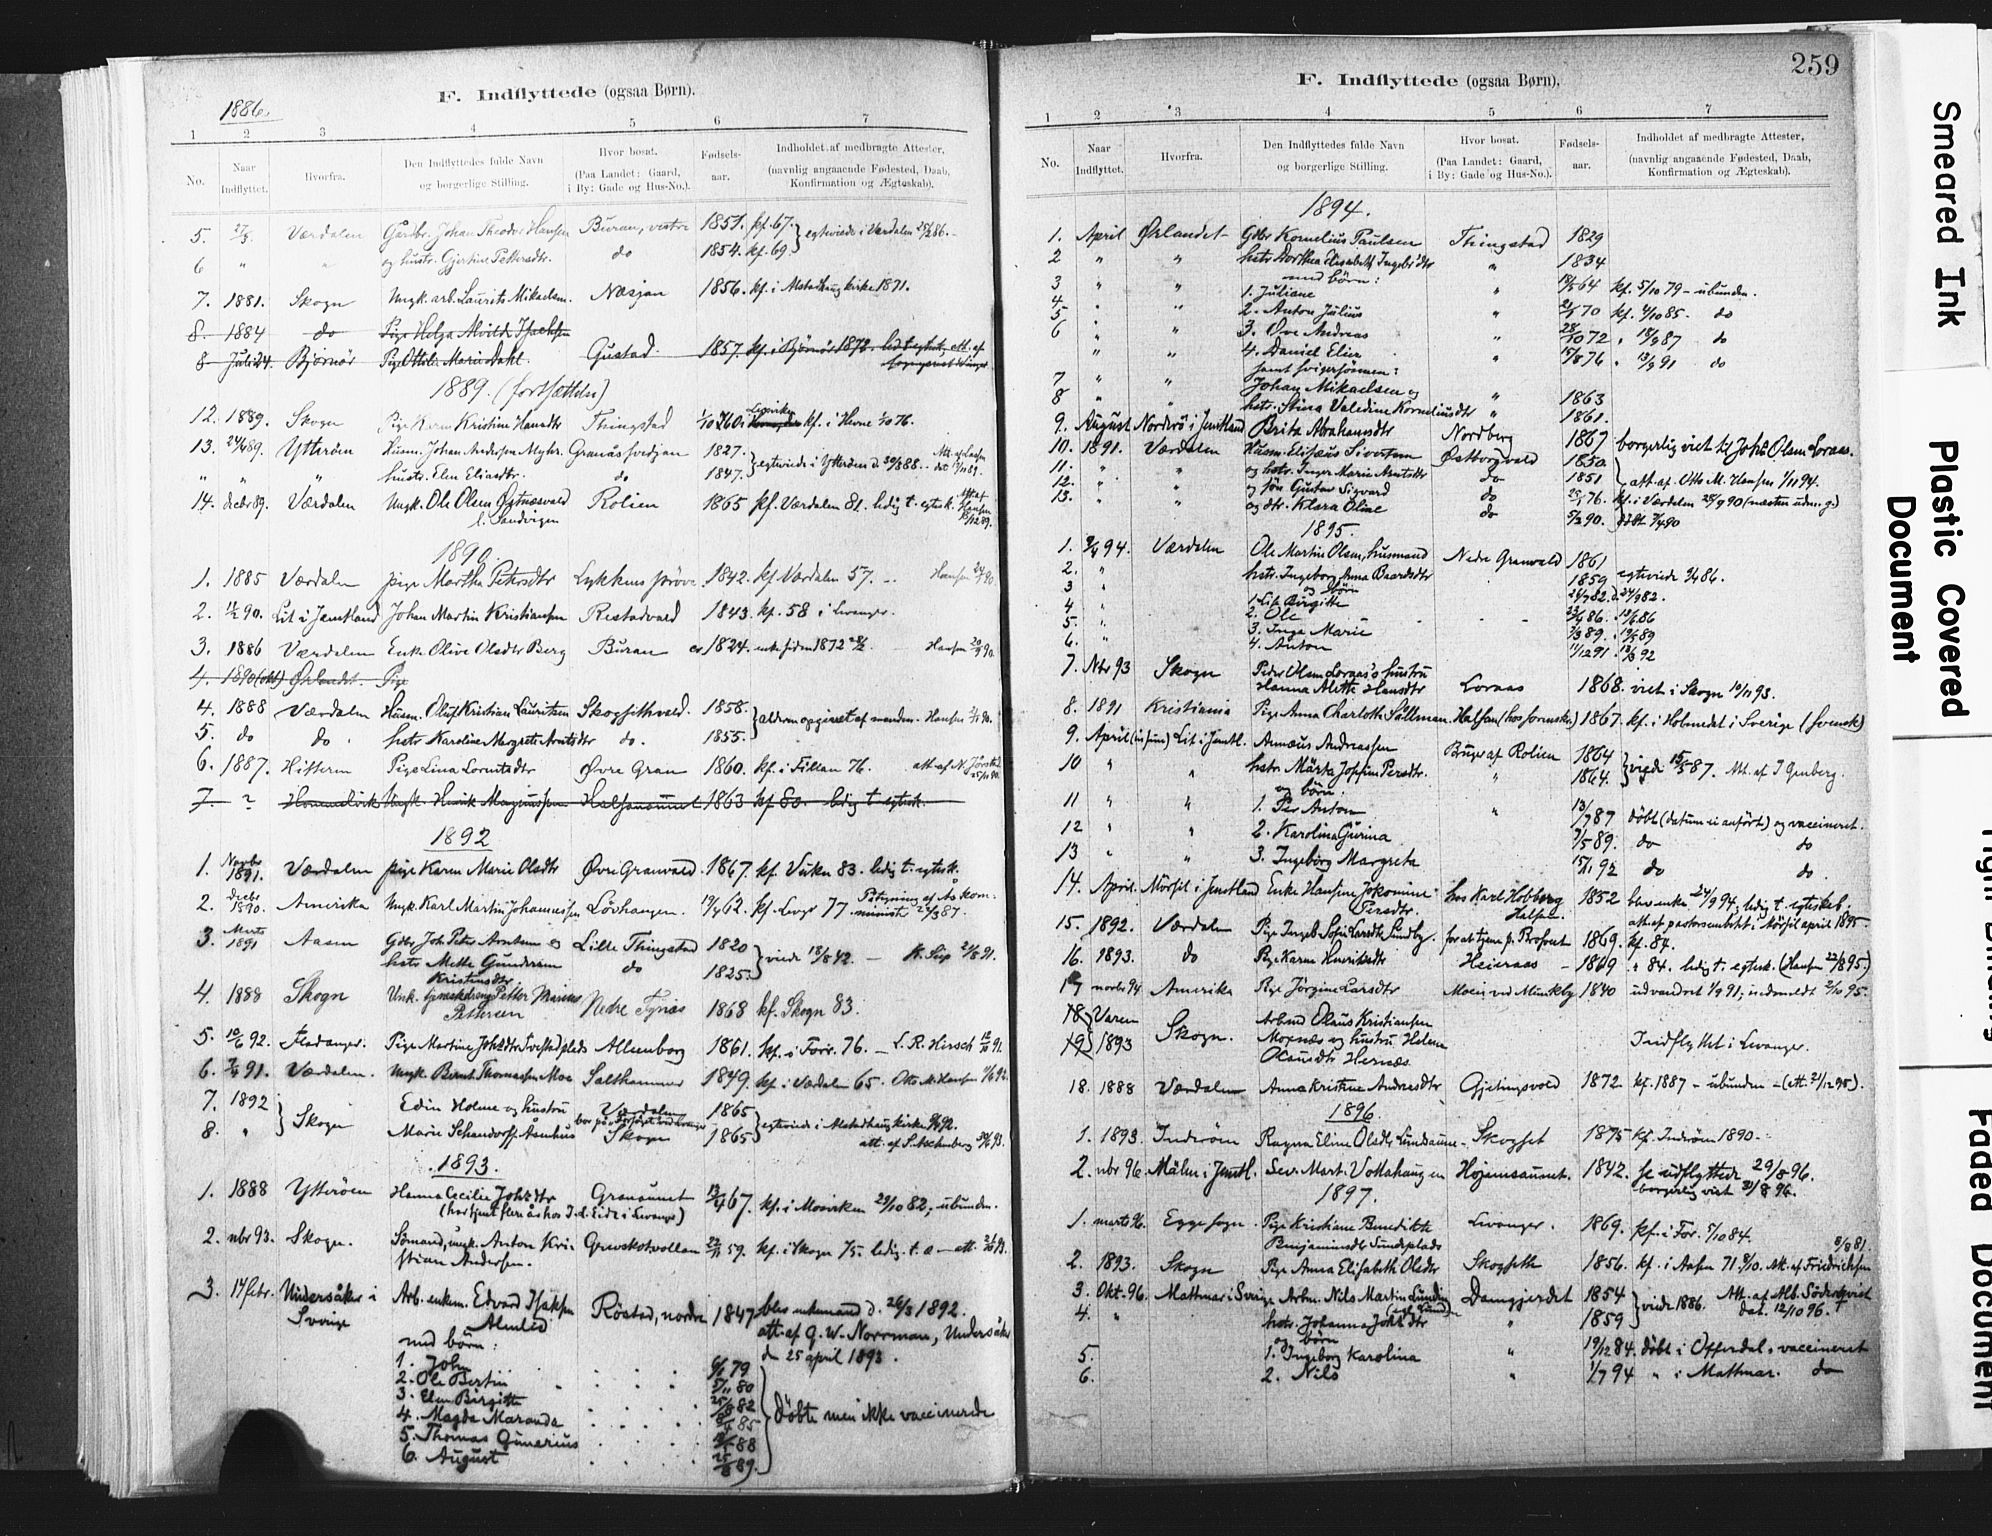 F. Indflyttede (ogsaa Børn).
1886.
1 2 3 4 5 6 7
No. Naar Indflyttet. Hvorfra. Den Indflyttedes fulde Navn og borgerlige Stilling. Hvor bosat. (Paa Landet: Gaard, i By: Gade og Hus-No.). Fødselsaar. Indholdet af medbragte Attester, (navnlig angaaende Fødested, Daab, Konfirmation og Ægteskab).
5. 27/5. Værdalen Gårdbr. Johan Theodor Hansen Buran, vestre 1851. kf. 67. } egteviede i Værdalen 86.
6 " " og hustr. Gjertine Pettersdtr. do 1854. kf. 69
7. 1881. Skogn Ungk. arb. Laurits Mikaelsen. Næsjan 1856. kf. i Alstadhaug kirke 1871.
8. 1884 do Pige Helga Alvilde Isachsen
8 Juli 24. Bjørnør Pige Ottilie Marie Dahl Gustad. 1857. kf. i Bjørnør 1872. ledig t. egtesk., att. af
1889. (fortsættelse)
12. 1889. Skogn Pige Karen Kristine Hansdtr Thingstad kf. i Hevne 76.
13. 24/6 89. Ytterøen Husm. Johan Andersen Myhr. Granåsfvedjan 1827. } egteviede i Ytterøen d. 88.
" " " hustr. Elen Eliasdtr. do 1847.
14. decbr 89. Værdalen Ungk. Ole Olsen Østnæsvald Rolien 1865 kf. Værdalen 81. ledig t. egtesk.
l. Sandvigen
1890.
1. 1885 Værdalen pige Martha Petersdtr Lykkens prøve 1842. kf. Værdalen 57. — Hansen 90.
2. 90. Lit i Jemtland Johan Martin Kristiansen Restadvald 1843. kf. 58 i Levanger.
3. 1886 Værdalen Enke Olive Olsdtr Berg Buran 1824. enke siden 1872 — Hansen 90.
4. 1890 (okt) Ørlandet. Pige
4. 1888 Værdalen Husm. Oluf Kristian Lauritsen Skogsethvald. 1858. } alderen opgivet af manden. Hansen 90.
5. do do hstr. Karoline Margrete Arntsdtr do. 1855.
6. 1887. Hitteren Pige Lina Lorentsdtr Øvre Gran 1860. kf. i Fillan 76.
7. ? Hommelvik Ungk. Henrik Magnussen Halsanaunet 1863 kf. 80. ledig t. egtesk.
1892
1. Novbr 1891. Værdalen pige Karen Marie Olsdtr Øvre Granvald. 1867. kf. Vuku 83. ledig t. egtesk.
2. Decbr 1890. Amerika Ungk. Karl Martin Johannessen Lövhaugen. 62. kf. Levgr 77. Påtegning af Ås kom-
minister 87.
3. Marts 1891 Aasen Gdbr. Joh. Peter Arntsen og Lille Thingstad 1820 } viede 13/8 42. — 91.
hstr Mette Gundersen do 1825.
Kristensdtr
4. 1888 Skogn Unk. tjenestedreng Petter Marius Nedre Fynæs 1868 kf. Skogn 83.
Pettersen
5. 10/6 92. Fladanger. Pige Martine Allumborg 1861. kf. i Forr. 76. — L. R. Hirsch 91.
6. 91. Værdalen. Ungk. Bernt Thomassen Moe Salthammer 1849. kf. i Værdalen 65. Otto M. Hansen
7. 1892 } Skogn Edin Holme og hustru Værdalen 1865 } egteviede i Alstadhaug kirke 92.
8. " Marie Schandorff Aasnhus Skogn 1865
1893.
1. 1888 Ytterøen Hanna Cecilie Joh.dtr Granaunet 67. kf. i Mosviken 29/10 82, ubunden.
(har tjent flere år hos I. L. Eide i Levanger)
2. nbr 93. Skogn. Sömand, ungk. Anton Kri- Grevskotvollen 59. kf. i Skogn 75. ledig. t. æ — att. 93.
stian Andersen.
3. 17 febr. Undersåker i Arb. enkem. Edvard Isaksen Röstad, nordre 1847 blev enkemand d. 26/3 1892.
Sverige Almlid att. af G. W. Norrman, Undersåker
med börn: d. 25 april 1893.
1. John 79
2. Ole Bertin 5/11 80
3. Elen Birgitte 25/8 82
4. Magda Maranda 85 } döbte men ikke vaccinerede
5. Thomas Gunerius 88
6. August 25/8 89.
259
F. Indflyttede (ogsaa Børn).
1 2 3 4 5 6 7
No. Naar Indflyttet. Hvorfra. Den Indflyttedes fulde Navn og borgerlige Stilling. Hvor bosat. (Paa Landet: Gaard, i By: Gade og Hus-No.). Fødselsaar. Indholdet af medbragte Attester, (navnlig angaaende Fødested, Daab, Konfirmation og Ægteskab).
1894.
1. April Ørlandet Gdbr Kornelius Paulsen Thingstad 1829
2 " " hstr. Dorthea Elisabeth Ingebr.dtr " 1834
med börn:
3 " " 1. Juliane " 64 kf. 5/10 79 – ubunden.
4 2. Anton Julius " 70 kf. 4/10 85. do
5 " " 3. Ove Andreas " 28/10 72 " 18/9 87 do
6 " " 4. Daniel Elier " 15/8 76 " 13/9 91 do
samt svigersønnen:
7 " " Johan Mikaelsen og " 1863
8 " " hstr. Stina Valedine Korneliusdtr " 1861.
9. August Norderö i Jemtland Brita Abrahamsdtr Nordberg 1867 borgerlig viet til Johs Olsen Loraas.
10. 1891. Værdalen Husm. Elisæus Sivertsen Østborgvald 1850
11. " " og hstr. Inger Marie Arntsdtr do 1851 } att. af Otto M. Hansen 1/11 94.
12. " " og søn Gustav Sigvard do 76. kf. i Værdalen 28/9 90 (næsten udm. g.)
13. " " og dtr. Klara Oline do 5/2 90. döbt 7/4 90
1895.
1. 94. Værdalen Ole Martin Olsen, husmand Nedre Granvald 1861
2. " hstr. Ingeborg Anna Baardsdtr 1859 egteviede 86.
og børn
3 " 1. Lise Birgitte 26/7 82. d. 24/9 82.
4 " 2. Ole 86. 86
5. " 3. Inga Marie 89. 89
6. " 4. Anton 11/12 91. 13/3 92
7. Nbr 93 Skogn Peder Olsen Loraas's hustru
Hanna Alette Hansdtr Loraas 1868. viet i Skogn 10/11 93.
8. 1891 Kristiania Pige Anna Charlotte Sållman. Halsan (hos formskr.) 1867. kf. i Holmedal i Sverige (svensk)
9. April Lit i Jemtl. Annæus Andreassen Bruger af Rolien 1864 } viede 87. Att. af J Genberg.
10 " " hstr. Märta Josefina Persdtr. " 1864.
og börn.
11 " " 1. Per Anton " 13/7 87 döbt (datum ei anfört) og vaccineret.
12 " " 2. Karolina Gurina 7/5 89. do do
13 " " 3. Ingeborg Margreta 15/1 92 do do.
14. April. Mörsil i Jemtland Enke Hansine Jakomine hos Karl Hobberg 1852 blev enke 24/9 94, ledig t. egteskab.
Persdtr. Halsan. att. af pastorsembetet i Mörsil april 1895.
15. 1892. Værdalen Pige Ingeb. Sofie Larsdtr Sundby. for at tjene p. Brofoset 1869. kf. 84.
16. 1893. do Pige Karen Henriksdtr Heieraas – 1869 " 84. ledig t. egtesk. (Hansen 22/8 95)
17 novbr 94 Amerika Pige Jørgine Larsdtr Moen ved Munkeby 1840 udvandret 1/9 91; indmeldt 2/10 95.
18 } Våren Skogn. Arbmd Olaus Kristiansen
19 } 1893 Moxnæs og hustru Helene Indflyttet i Levanger.
Olausdtr Hernæs.
18. 1888 Værdalen Anna Kristine Andreasdtr Gjetingsvold 1872 kf. 1887 – ubunden – (att. 2/12 95).
1896.
1. 1893. Inderøen Ragna Eline Olsdtr Lundsaune Skogset 1875 kf. Inderøen 1890.
2. nbr 96. Målen i Jemtl. Sev. Mart. Vottahaugen Højemsaunet. 1842. se udflyttede 29/8 96.
borgerlig viet 31/8 96.
1897.
1. marts 96. Egge sogn. Pige Kristiane Benedikte Levanger. 1869. kf. i For. 5/10 84.
Benjaminsdtr Sundsplads
2. 1893. Skogn Pige Anna Elisabeth Olsdtr Skogseth 1856. kf. i Aasen 71 Att. af Friedrichsen
3. Okt. 96. Mattmar i Sverige Arbm. Nils Martin Lundin Damgjerdet 1854 } viede 1886. Att. af Alb. Söderqvist
4. " hstr. Johanna Joh.dtr " 1859 dat. 12/10 96.
og börn
5. 1. Ingeborg Karolina " 19/12 84. döbt i Offerdal, vaccineret
6. 2. Nils " 1/7 94 " i Mattmar. do
Smeared Ink
Plastic Covered
Document
Tight Binding
Faded Document